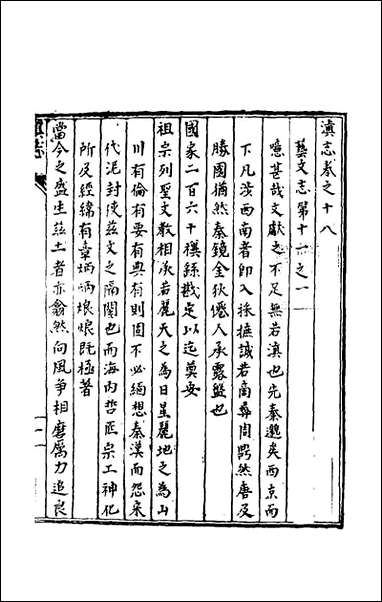 滇志卷之十八
藝文志第十一之一
噫甚哉文獻之不足無若滇也先秦邈矣西京而
下凡茨西南者即入採摭誠若商彝周鬲然唐及
勝國猶然秦鏡金狄僊人承露盤也
國家二百六十禩餘戡定以迄奠安
祖宗列聖文教相承若麗天之為日星麗地之為山
川有倫有要有典有則固不必緬想秦漢而怨宋
代泥封使茲文之隔閡也而海內哲匠宗工神化
所及經緯有章炳炳烺烺既極著
當今之盛生茲土者亦翕然向風爭相磨厲力追良
滇志